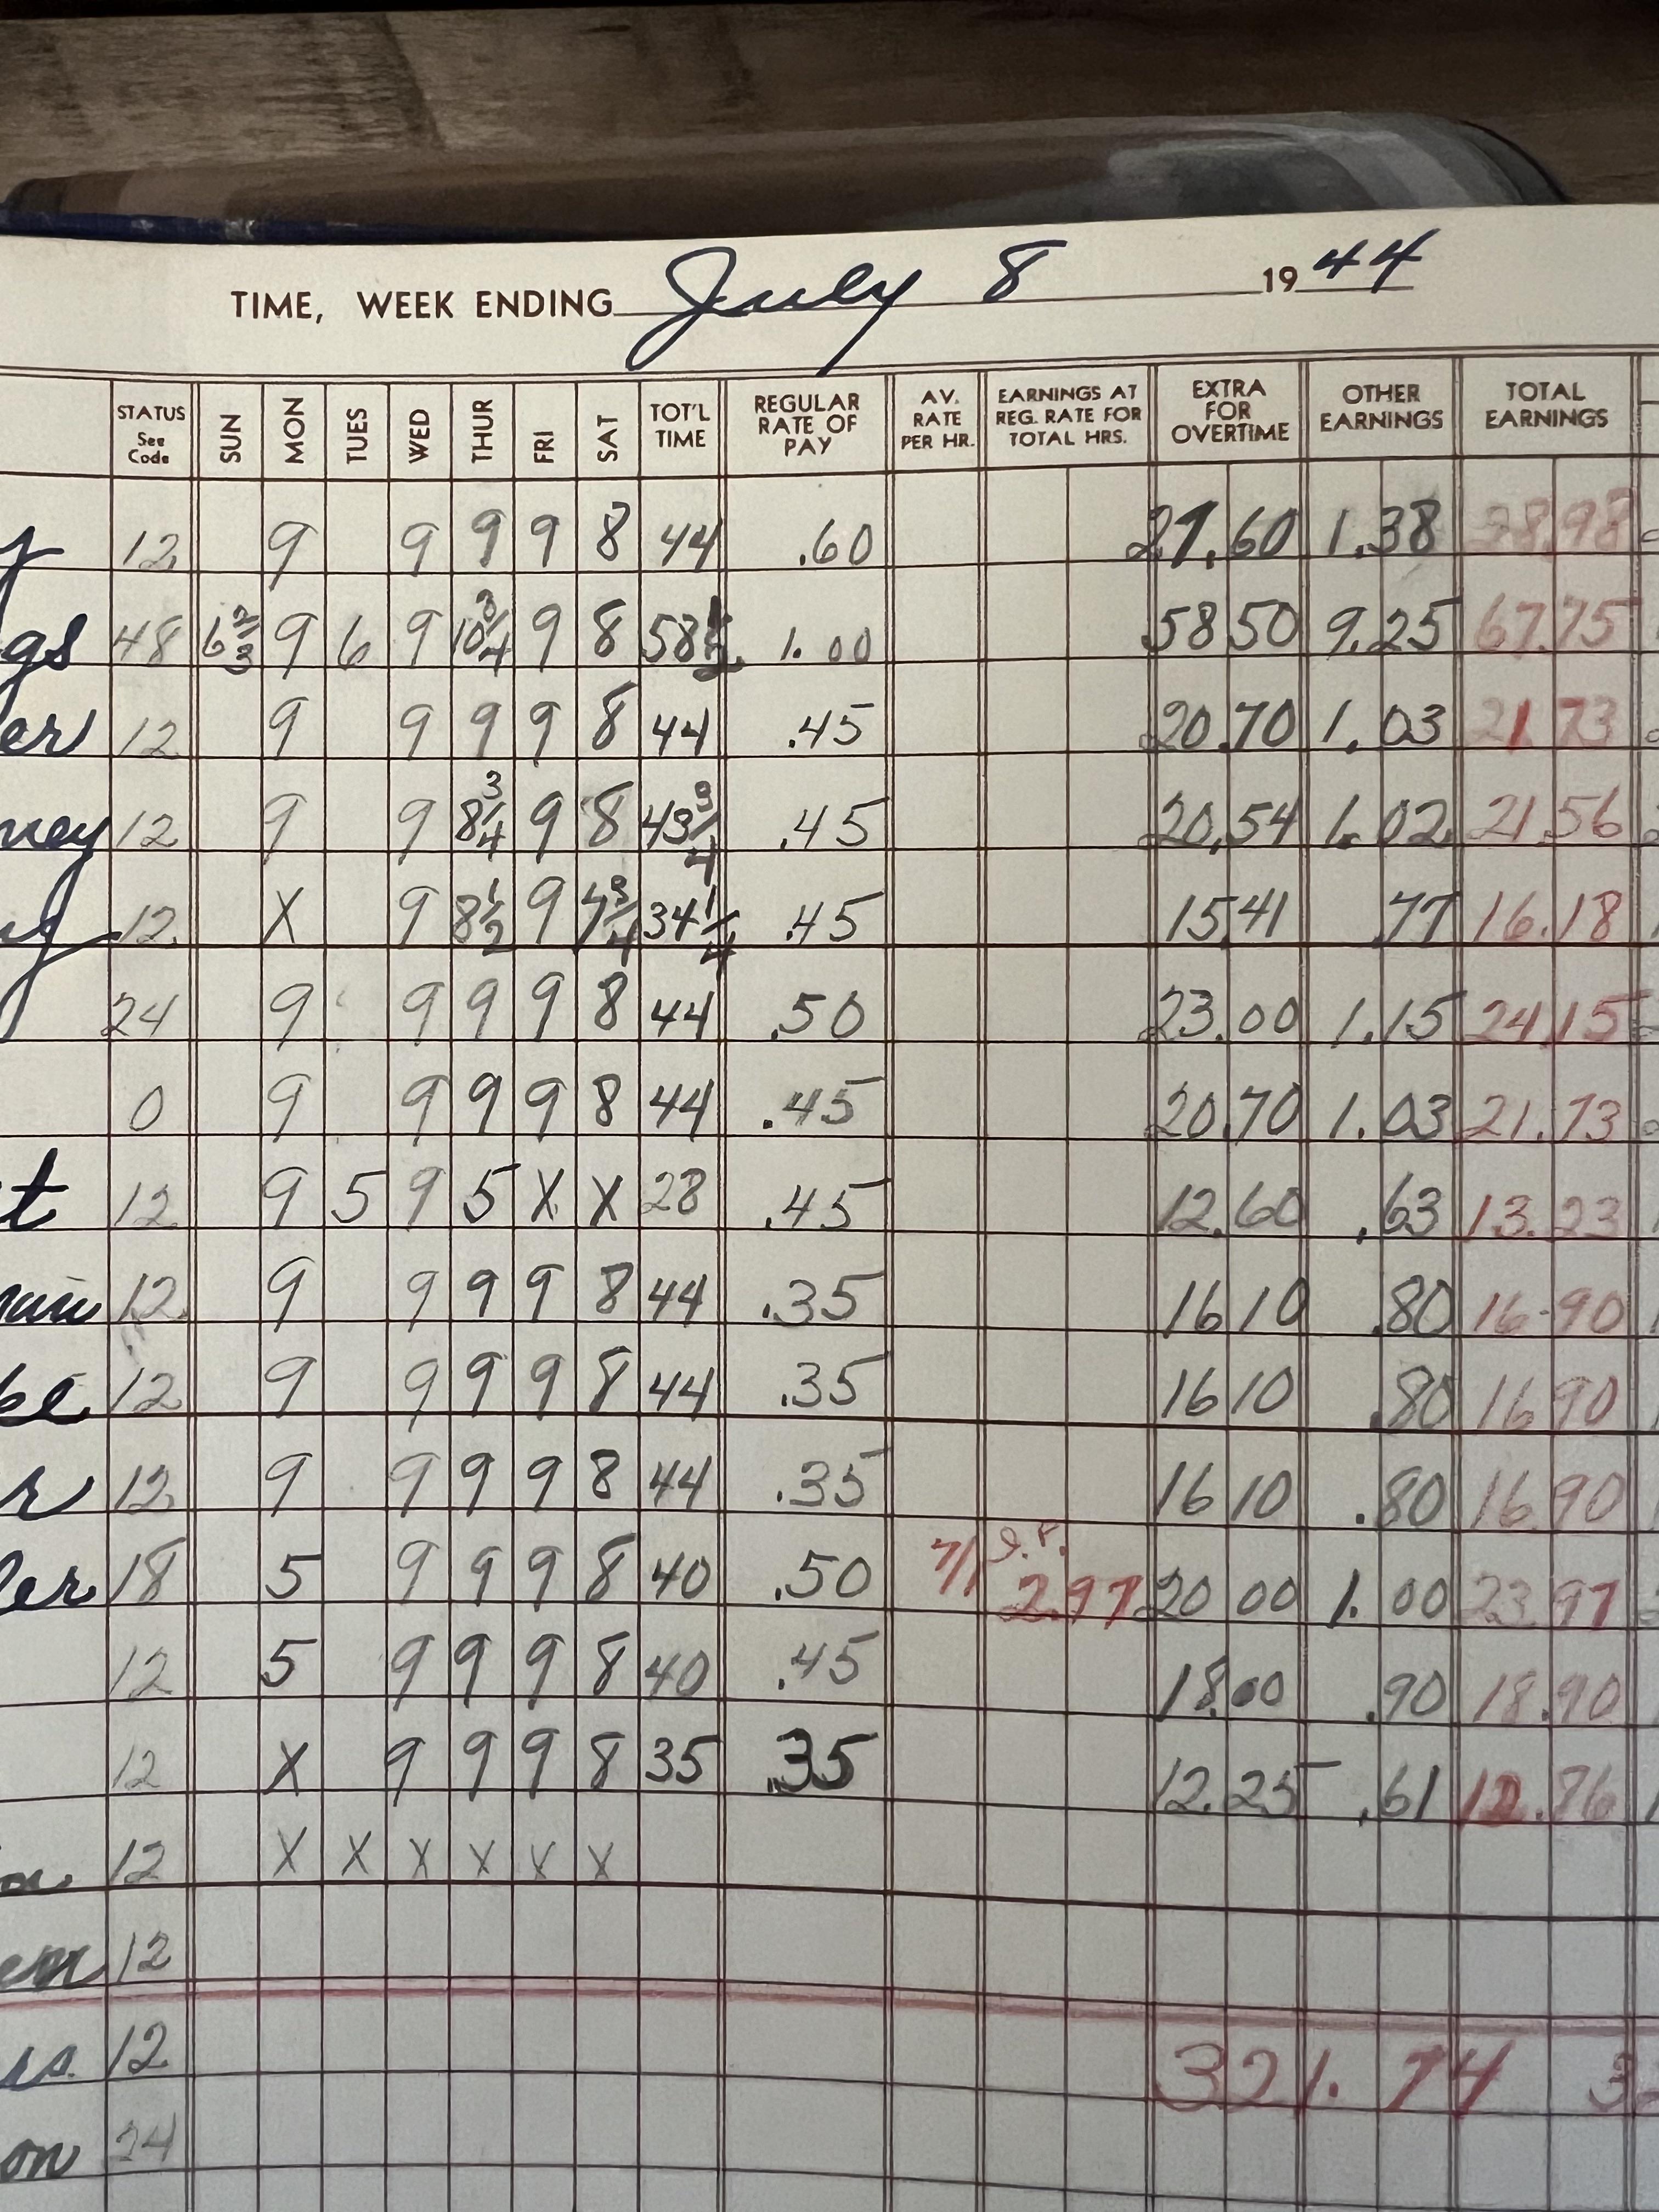 TIME, WEEK ENDING July 8 1944
STATUS See Code SUN MON TUES WED THUR FRI SAT TOT'L TIME REGULAR RATE OF PAY AV. RATE PER HR. EARNINGS AT REG. RATE FOR TOTAL HRS. EXTRA FOR OVERTIME OTHER EARNINGS TOTAL EARNINGS
y 12 9 9 9 9 8 44 .60 27.60 1.38 28.98
gs 48 6 2/3 9 6 9 10 3/4 9 8 58 1/2 1.00 58 50 9.25 67.75
er 12 9 9 9 9 8 44 .45 20.70 1.03 21.73
ney 12 9 9 8 3/4 9 8 43 3/4 .45 20.54 1.02 21.56
y 12 X 9 8 1/2 9 7 3/4 34 1/4 .45 15.41 .77 16.18
24 9 9 9 9 8 44 .50 23.00 1.15 24.15
0 9 9 9 9 8 44 .45 20.70 1.03 21.73
t 12 9 5 9 5 X X 28 .45 12.60 .63 13.23
12 9 9 9 9 8 44 .35 16 10 .80 16-90
ke 12 9 9 9 9 8 44 .35 16 10 .80 16 90
r 12 9 9 9 9 8 44 .35 16 10 .80 16.90
ler 18 5 9 9 9 8 40 .50 7/1 2.97 20 00 1.00 23.97
12 5 9 9 9 8 40 .45 18.00 .90 18.90
12 X 9 9 9 8 35 .35 12.25 .61 12.86
12 X X X X X X
en 12
is 12 321.74 3
on 24